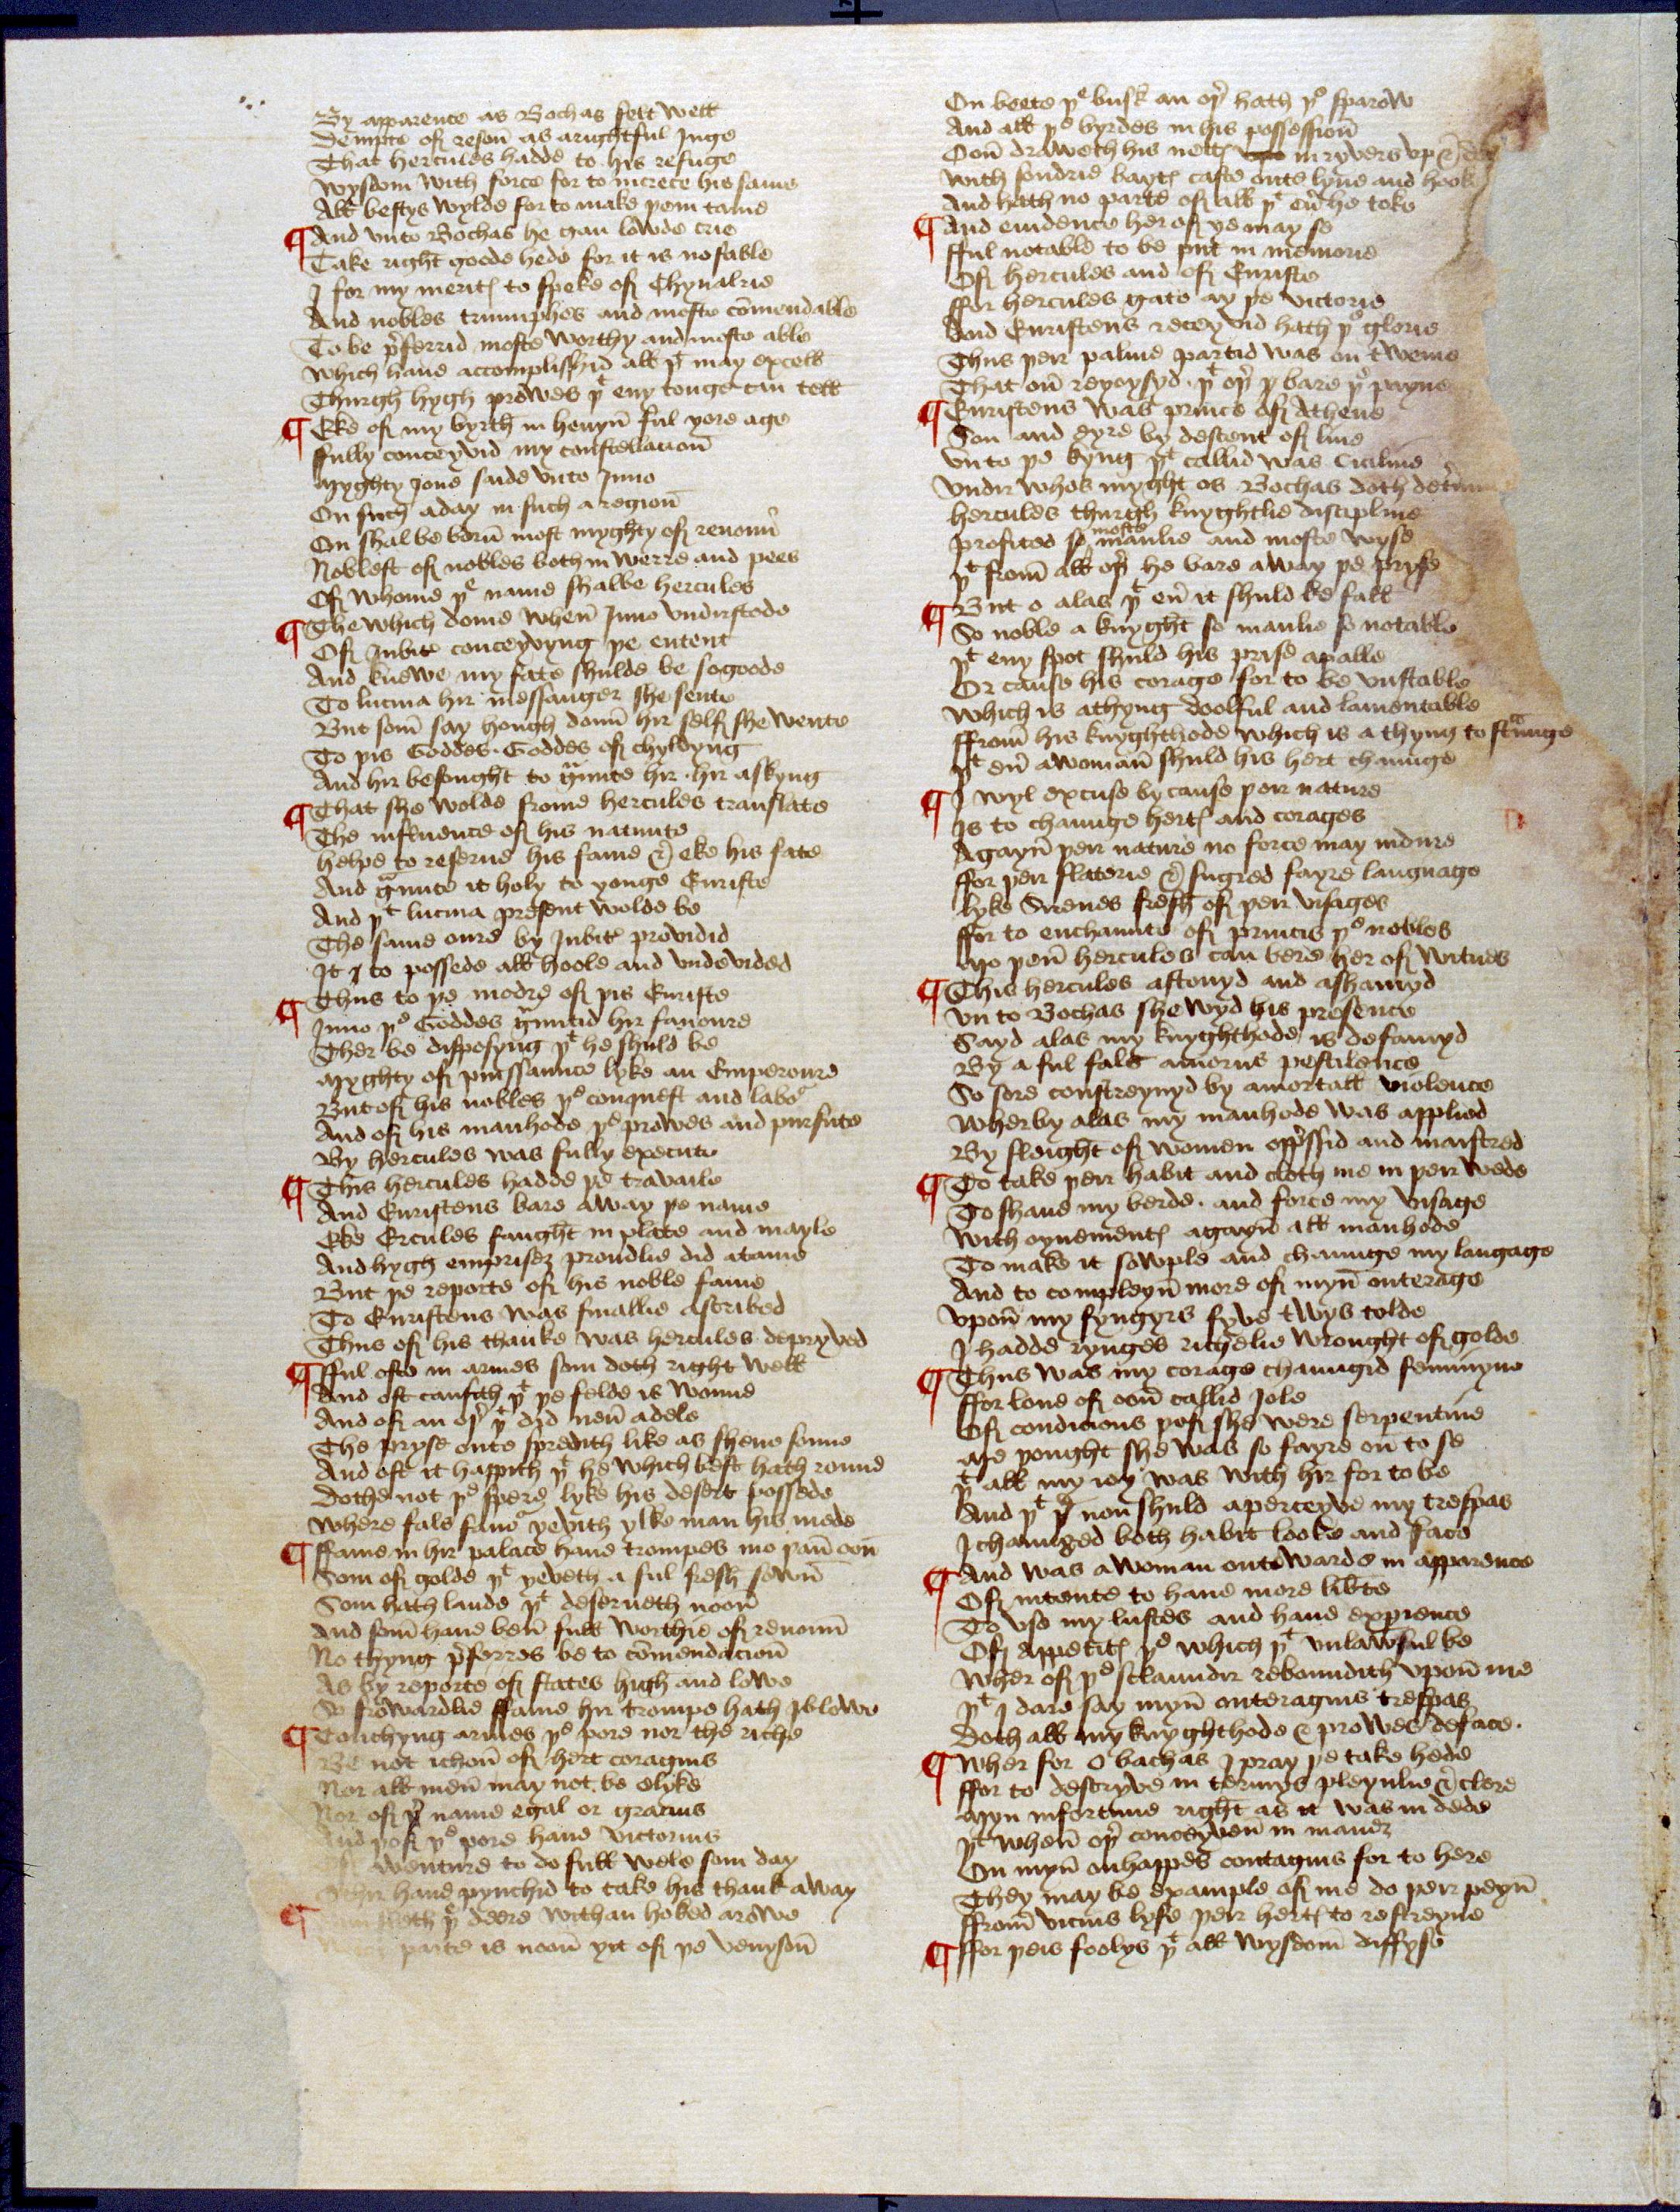 By apparence as Bochas felt well
Dempte of reson̄ as arightful Juge
That hercules hadde to his refuge
Wysdom with force for to increce his fame
All bestys wylde for to make þem tame
¶ And vnto Bochas he gan lowde crie
Take right goode hede for it is no fable
I for my meritꝭ to speke of Chyualrie
And nobles triumphes and moste cōmendable
To be p̄ferrid moste worthy and moste able
Which haue accomplisshid all þᵗ may excell
Thurgh hygh prowes þᵗ eny tonge can tell
¶ Eke of my byrth in heuyn̄ ful yore ago
ffully conceyvid my constellacion̄
Myghty Joue saide vnto Juno
On such aday in such a region̄
On shal be born̄ most myghty of renoun̄
Noblest of nobles both in werre and pees
Of whome þᵉ name shalbe hercules
¶ The which dome when̄ Juno vndirstode
Of Jubit̄ conceyvyng þe entent
And knewe my fate shulde be so goode
To lucina hir messanger she sente
But som̄ say hough doun̄ hir self she wente
To þis Goddes · Goddes of chyldyng
And hir besought to gᵃunte hir · hir askyng
¶ That she wolde frome hercules translate
The influence of his natiuite
helpe to reserue his fame & eke his fate
And gᵃunte it holy to yonge Euriste
And þᵗ lucina present wolde be
The same oure by Jubit̄ providid
It I to possede all hoole and vndevided
¶ Thus to þe modre of þis Euriste
Juno þᵉ Goddes gᵃuntid hir fauoure
Ther be disposyng þᵗ he shuld be
Myghty of puissaunce lyke an Emperoure
But of his nobles þᵉ conquest and laboᵘ
And of his manhode þᵉ prowes and pursute
By hercules was fully execute
¶ This hercules hadde þe travaile
And Euristeus bare away þe name
Eke Ercules faught in plate and mayle
And hygh emprisez proudlie did atame
But þe reporte of his noble fame
To Euristeus was finallie ascribed
Thus of his thanke was hercules depryved
¶ fful ofte in armes som doth right well
And oft causith þᵗ þe felde is wonne
And of an oþ̄ þᵗ did neū adele
The pryse oute spredith like as shene sonne
And oft it happith þᵗ he which best hath ronne
Dothe not þᵉ spere lyke his desert possede
Where fals fauoᵘ yevith ylke man his mede
¶ ffame in hir palace haue trompes mo þan̄ oon̄
Som of golde þᵗ yeveth a ful fresh sown̄
Som hath laude þᵗ deserueth noon̄
And som̄ haue ben̄ full worthie of renoun̄
No thyng p̄ferres be to cōmendacion̄
As by reporte of states high and lowe
So frowardlie ffame hir trompe hath Iblowe
¶ Touchyng armes þᵉ pore nor the riche
Be not ichon̄ of hert coragius
Nor all men̄ may not be elyke
Nor of þ̄ name egal or gracius
And þof þᵉ pore haue victorius
aventure to do full wele som day
Othir haue pynchid to take his thank away
¶ sleth þᵉ deere withan hoked arowe
parte is noon̄ yit of þe venyson̄
On beete þᵉ busk an oþ̄ hath þᵉ sparow
And all þᵉ byrdes in his possession̄
Oon̄ draweth his nettꝭ in ryvers vp &
With sondrie baytꝭ caste oute lyne and hook
And hath no parte of all þᵗ eū he toke
¶ And euidence her of ye may se
fful notable to be put in memorie
Of hercules and of Euriste
ffor hercules gate ay þe victorie
And Euristeus receyvid hath þᵉ glorie
Thus þeir palme partid was on tweine
That on̄ reioysyd · þᵗ oþ̄ y bare þᵉ payne
¶ Euristeus was prince of Athene
Son and eyre by descent of line
vnto þe kyng þᵗ callid was
vndir whos myght os Bochas doth det̄
hercules thurgh knyghtlie discipline
Profites so moste manlie and moste wyse
þᵗ from̄ all oþ̄ he bare away þe pryse
¶ But o alas þᵗ eū it shuld be fall
So noble a knyght so manlie so notable
þᵗ eny spot shuld his prise apalle
Or cause his corage for to be vnstable
Which is athyng doolful and lamentable
ffrom̄ his knyghthode which is a thyng to stᵃunge
þᵗ eū a woman̄ shuld his hert chaunge
¶ I wyl excuse by cause þeir nature
Is to chaunge hertꝭ and corages
Agayn̄ þeir nature no force may indure
ffor þeir flaterie & sugred fayre languages
lyke Sirenes fresh of þeir visages
ffor to enchaunte of princis þᵉ nobles
Mo þen̄ hercules can bere her of witnes
¶ This hercules astonyd and ashamyd
vn to Bochas shewyd his presence
Sayd alas my knyghthode is defamyd
By a ful fals amorus pestilence
So sore constreynyd by amortall violence
Wherby alas my manhode was applied
By sleight of women opp̄ssid and maistred
¶ To take þeir habit and cloth me in þeir wede
To shaue my berde · and force my visage
With oynementꝭ agayn̄ all manhode
To make it sowple and chaunge my langage
And to compleyn̄ more of myn̄ outerage
vpon̄ my fyngyrs fyve twys tolde
I hadde rynges richelie wrought of golde
¶ Thus was my corage chaungid feminyne
ffor loue of oon̄ callid Jole
Of condicions þof she were serpentine
Me þought she was so fayre on̄ to se
þᵗ all my ioy was with hir for to be
And þᵗ non shuld aperceyve my trespas
I chaunged both habit looke and face
¶ And was a woman outewarde in apparence
Of intente to haue more lib̄te
To vse my lustes and haue exp̄ience
Of appetitꝭ þᵉ which þᵗ vnlawful be
Wher of þᵉ sclaundir reboundith vpon̄ me
þᵗ I dare say myn̄ outeragius trespas
Doth all my knyghthode & prowes deface ·
¶ Wher for O bachas I pray þe take hede
ffor to descryve in termys pleynlie & clere
Myn infortune right as it was in dede
þᵗ when̄ oþ̄ conceyven̄ in maner
On myn̄ onhappes contagius for to here
They may be example of me do þeir peyn̄
ffrom̄ vicius lyfe þeir hertꝭ to restreyne
¶ ffor þeis foolys þᵗ all wysdom̄ diffyse